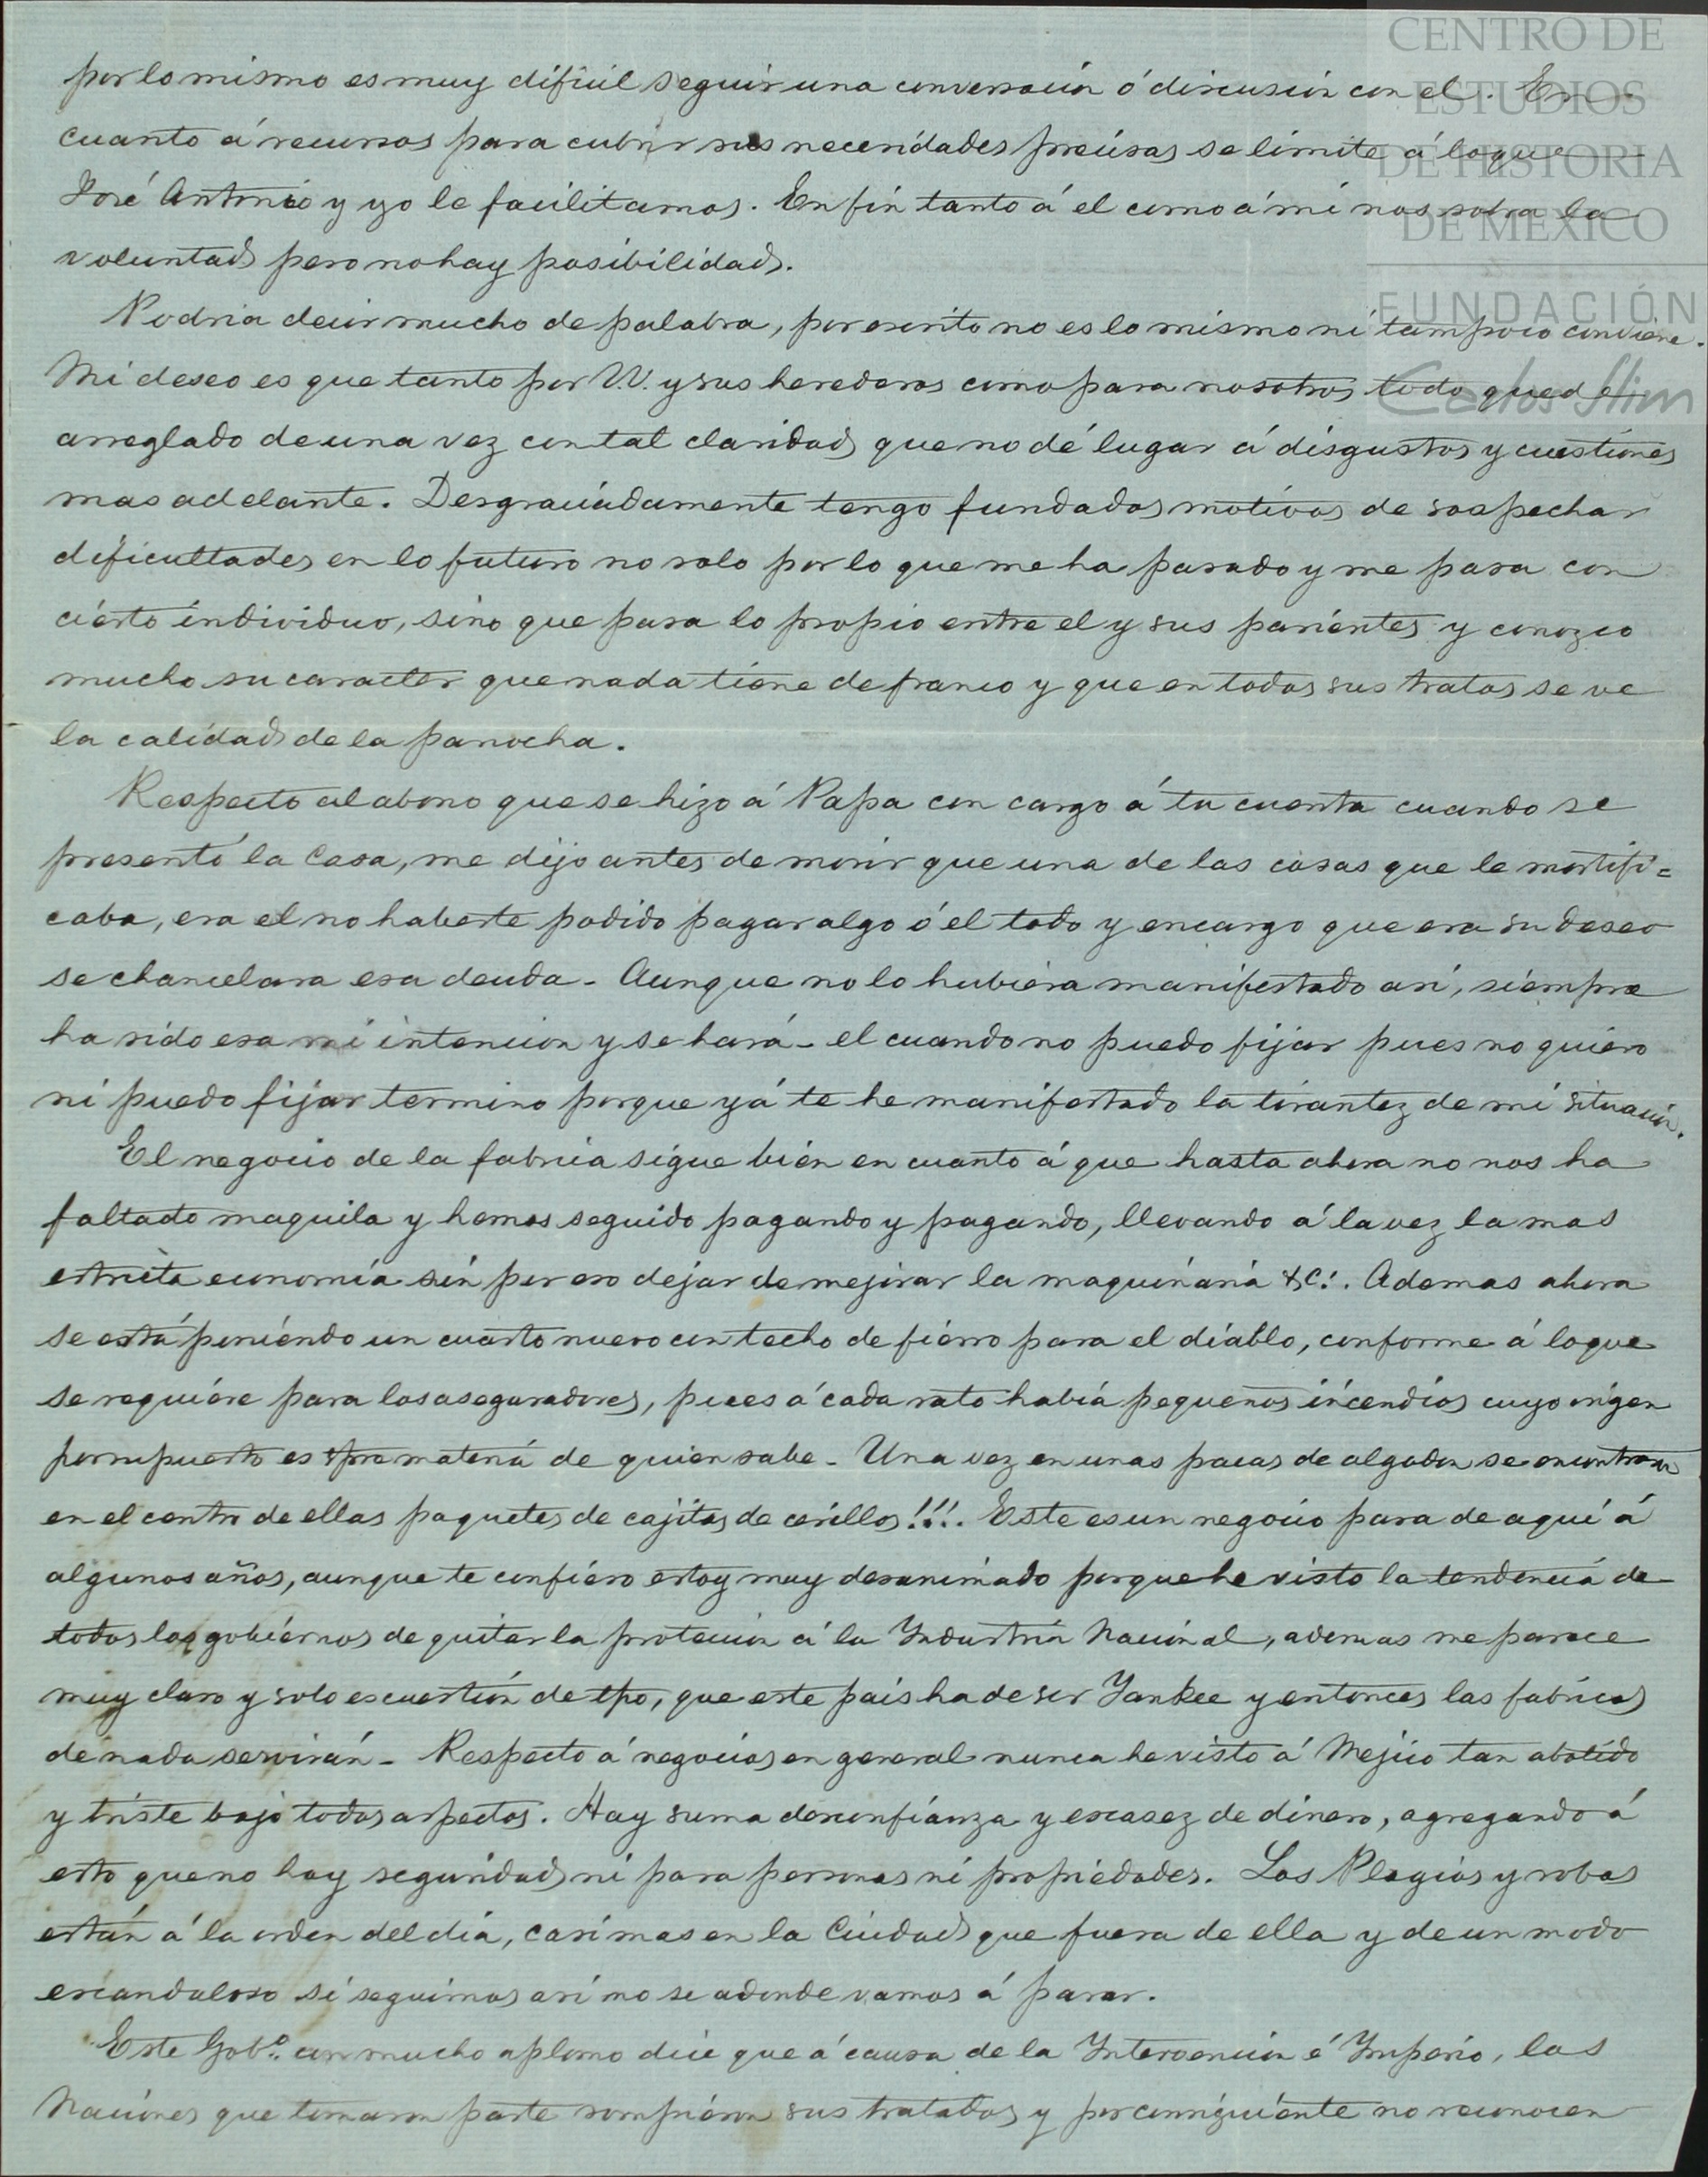 por lo mismo es muy dificil seguir una conversacion ó discusion con el. En
cuanto á recursos para cubrir sus necesidades precisas se limita á loque
José Antonio y yo le facilitamos. En fin tanto á el como á mi nos sobra la
voluntad pero no hay posibilidad.
Podria decir mucho de palabra, por escrito no es lo mismo ni tampoco conviene.
Mi deseo es que tanto por V.V. y sus herederos como para nosotros todo quede
arreglado de una vez con tal claridad que no dé lugar á disgustos y cuestiones
mas adelante. Desgraciadamente tengo fundados motivos de sospechar
dificultades en lo futuro no solo por lo que me ha pasado y me pasa con
cierto individuo, sino que pasa lo propio entre el y sus parientes y conozco
mucho su caracter que nada tiene de franco y que en todos sus tratos se ve
la calidad de la panocha.
Respecto al abono que se hizo á Papa con cargo á tu cuenta cuando se
presentó la Casa, me dijo antes de morir que una de las cosas que le mortifi=
caba, era el no haberte podido pagar algo ó el todo y encargo que era su deseo
se chancelara esa deuda - Aunque no lo hubiera manifestado asi, siempre
ha sido esa mi intencion y se hará - el cuando no puedo fijar pues no quiero
ni puedo fijar termino porque yá te he manifestado la tirantez de mi situacion.
El negocio de la fabrica sigue bien en cuanto á que hasta ahora no nos ha
faltado maquila y hemos seguido pagando y pagando, llevando á la vez la mas
estricta economia sin por eso dejar de mejorar la maquinaria &c:. Ademas ahora
se está poniendo un cuarto nuevo con techo de fierro para el diablo, conforme á loque
se requiere para los aseguradores, pues á cada rato habia pequeños incendios cuyo origen
por supuesto es spre materia de quien sabe - Una vez en unas pacas de algodon se encontraron
en el centro de ellas paquetes de cajitas de cerillos!!!. Este es un negocio para de aqui á
algunos años, aunque te confieso estoy muy desanimado porque he visto la tendencia de
todos los gobiernos de quitar la proteccion á la Yndustria Nacional, ademas me parece
muy claro y solo es cuestion de tpo, que este pais ha de ser Yankee y entonces las fabricas
de nada servirán - Respecto á negocios en general nunca he visto á Mejico tan abatido
y triste bajo todos aspectos. Hay suma desconfianza y escasez de dinero, agregando á
esto que no hay seguridad ni para personas ni propiedades. Los Plagios y robos
están á la orden del dia, casi mas en la Ciudad que fuera de ella y de un modo
escandaloso si seguimos asi no se adonde vamos á parar.
Este Gobº. con mucho aplomo dice que á causa de la Yntervencion é Ymperio, las
Naciones que tomaron parte rompieron sus tratados y por consiguiente no reconocen
CENTRO DE
ESTUDIOS
DE HISTORIA
DE MÉXICO
FUNDACIÓN
Carlos Slim